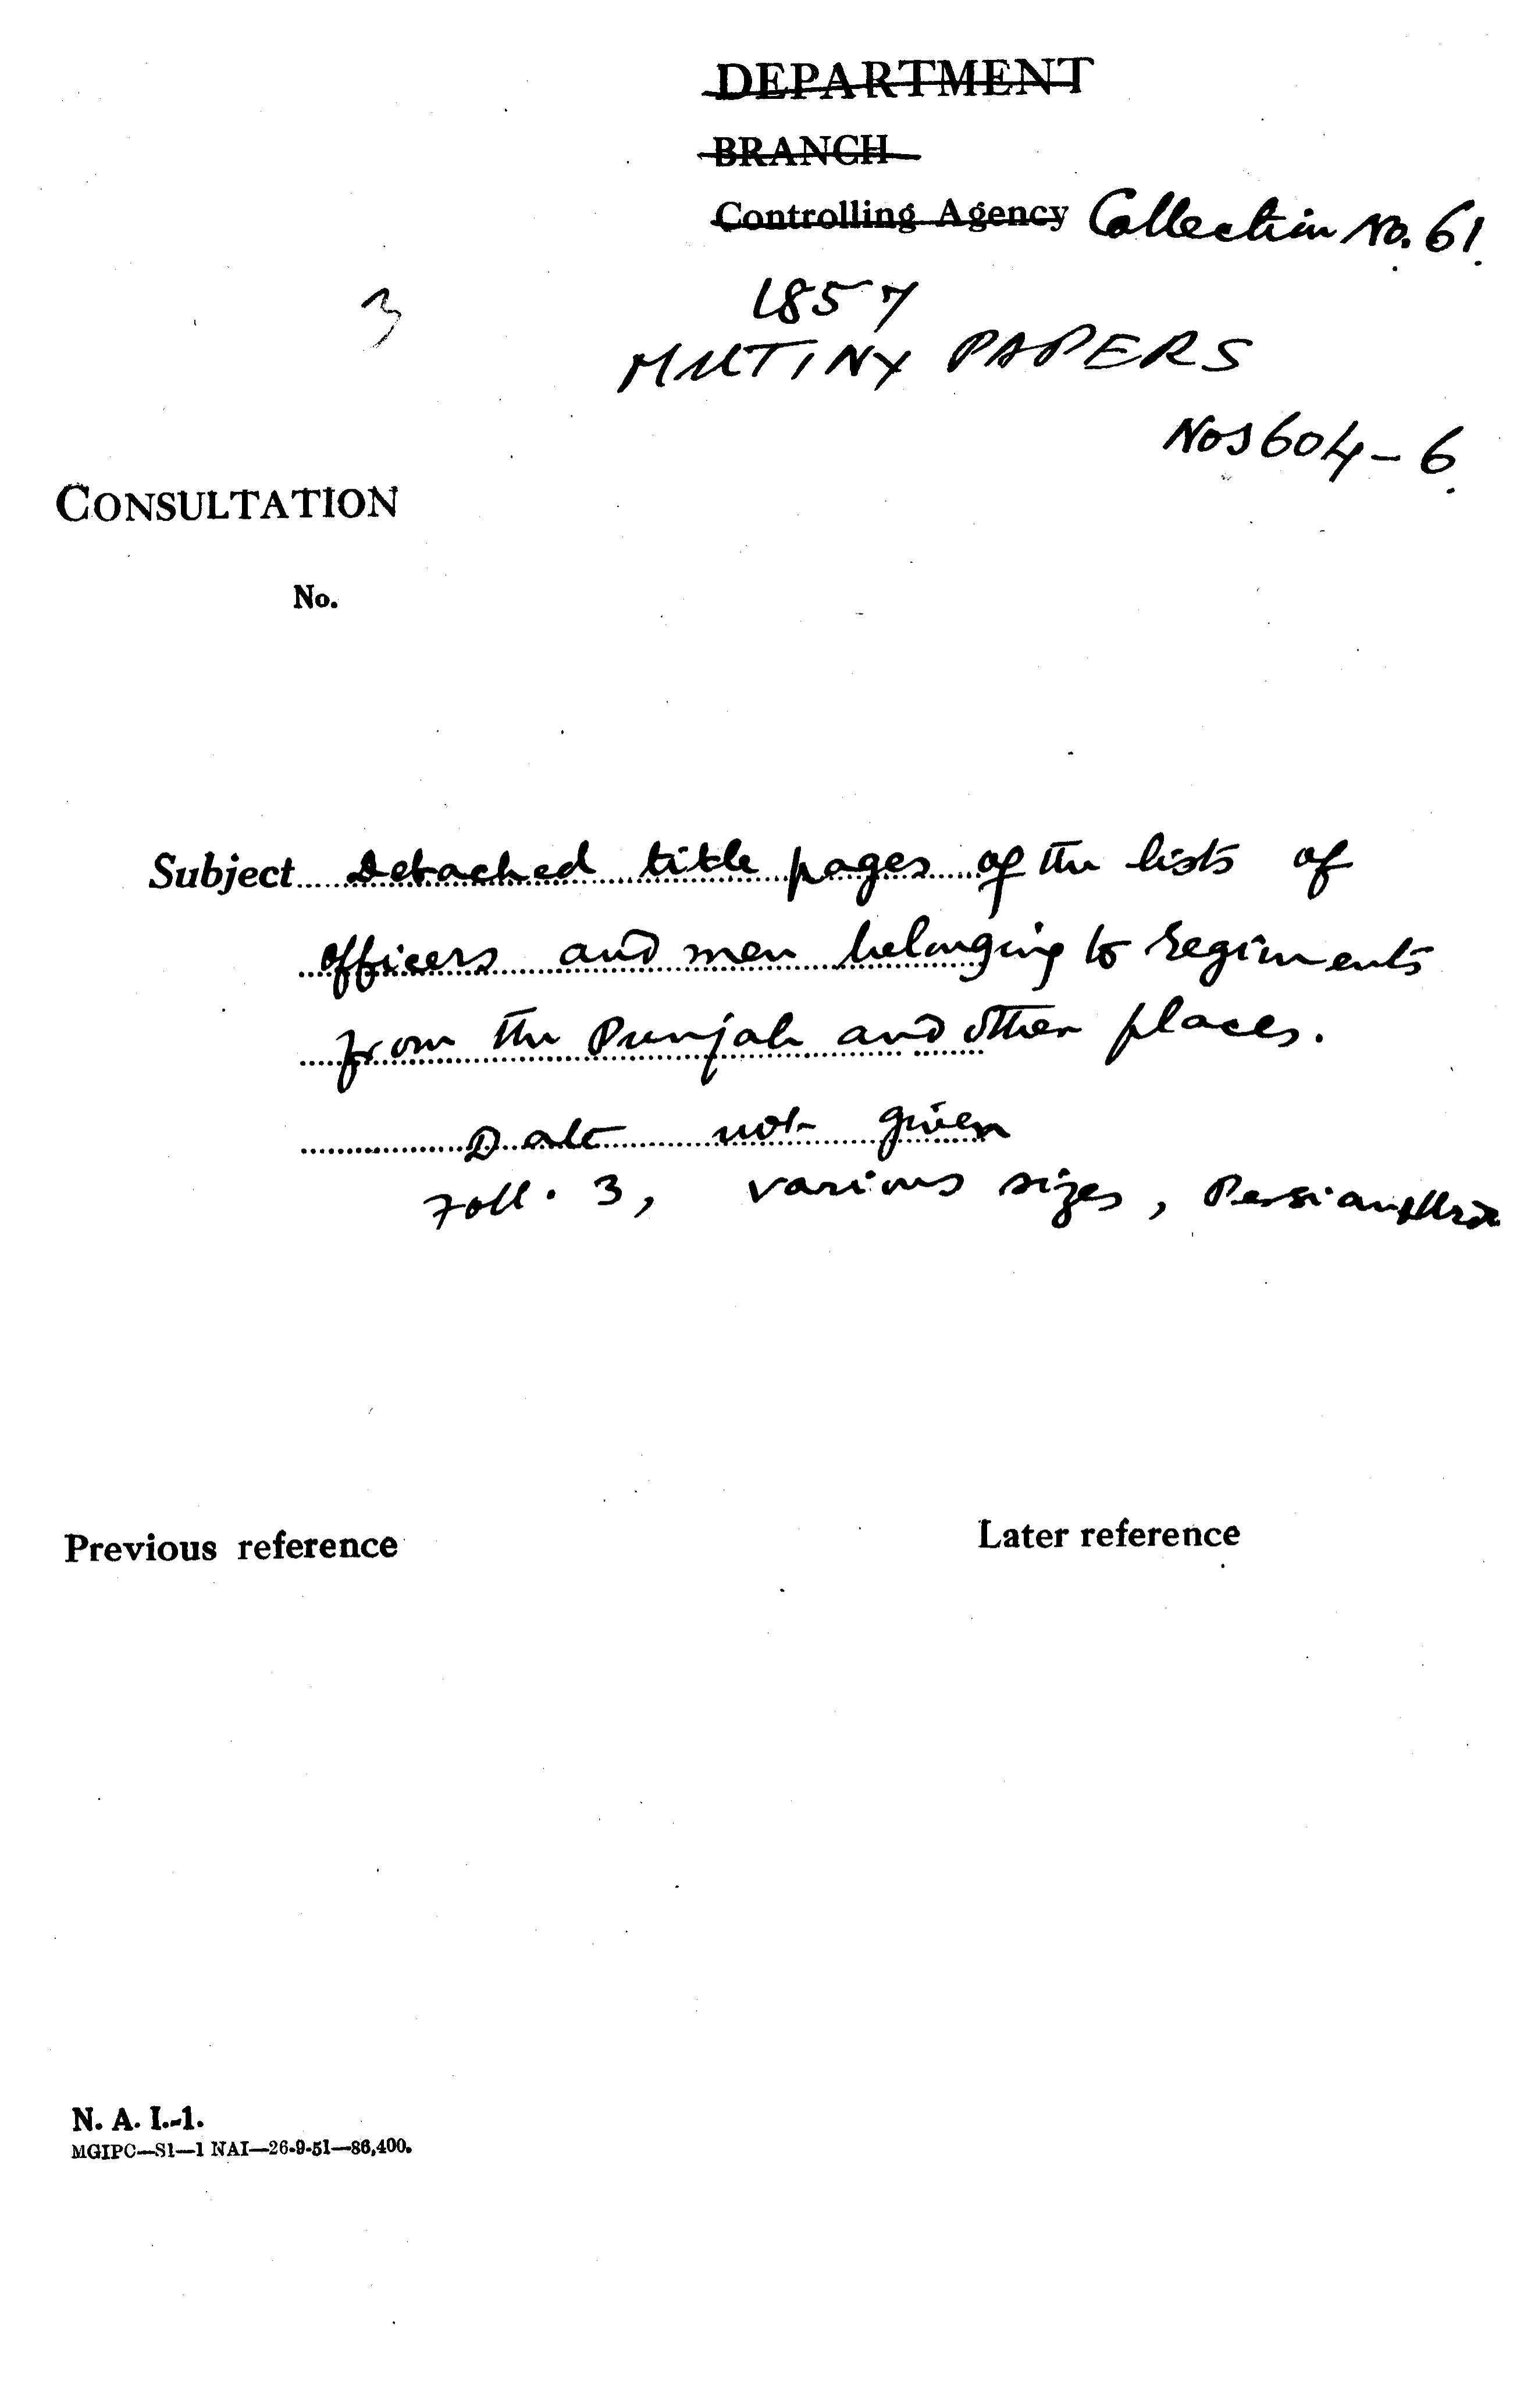 DEPARTMENT
BRANCH
Controlling Agency Collection No. 61.
3
1857
MUTINY PAPERS
Nos 604-6.
CONSULTATION
No.
Subject Detached title pages of the lists of
officers and men belonging to regiments
from the Punjab and other places.
Date not given
Foll. 3, various sizes, Persian &
Previous reference
Later reference
N. A. I.-1.
MGIPC—S1—1 NAI—26-9-51—86,400.